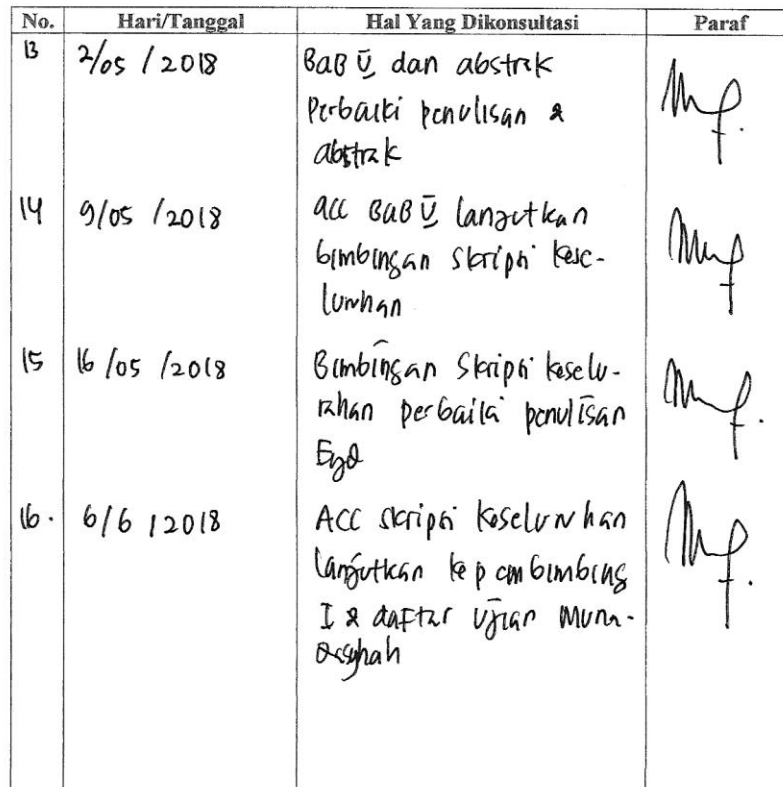 No. Hari/Tanggal Hal Yang Dikonsultasi Paraf
13 2/05 / 2018 BaB V, dan abstrak
Perbaiki penulisan &
abstrak
14 9/05 /2018 acc BaB V lanjutkan
bimbingan skripsi kese-
luruhan
15 16 /05 /2018 Bimbingan Skripsi keselu-
rahan perbaiki penulisan
Eyd
16. 6/6 /2018 ACC skripsi keseluruhan
lanjutkan ke pembimbing
I & daftar Ujian Muna-